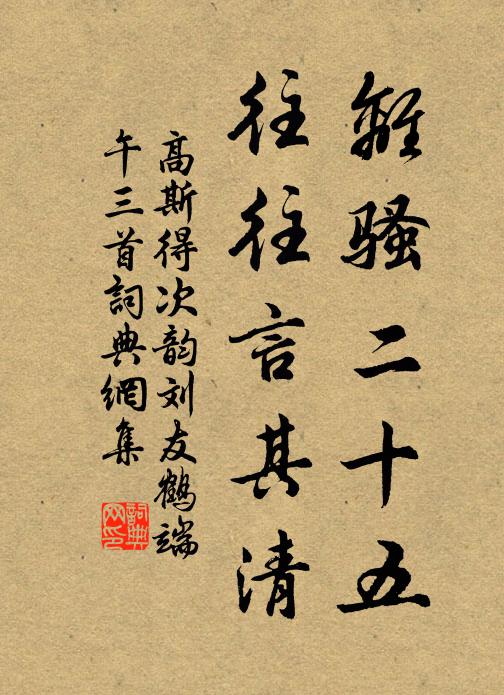 離骚二十五
往往言其清
高斯得次韵刘友鶴端
午三首詞典網集
詞典
网印